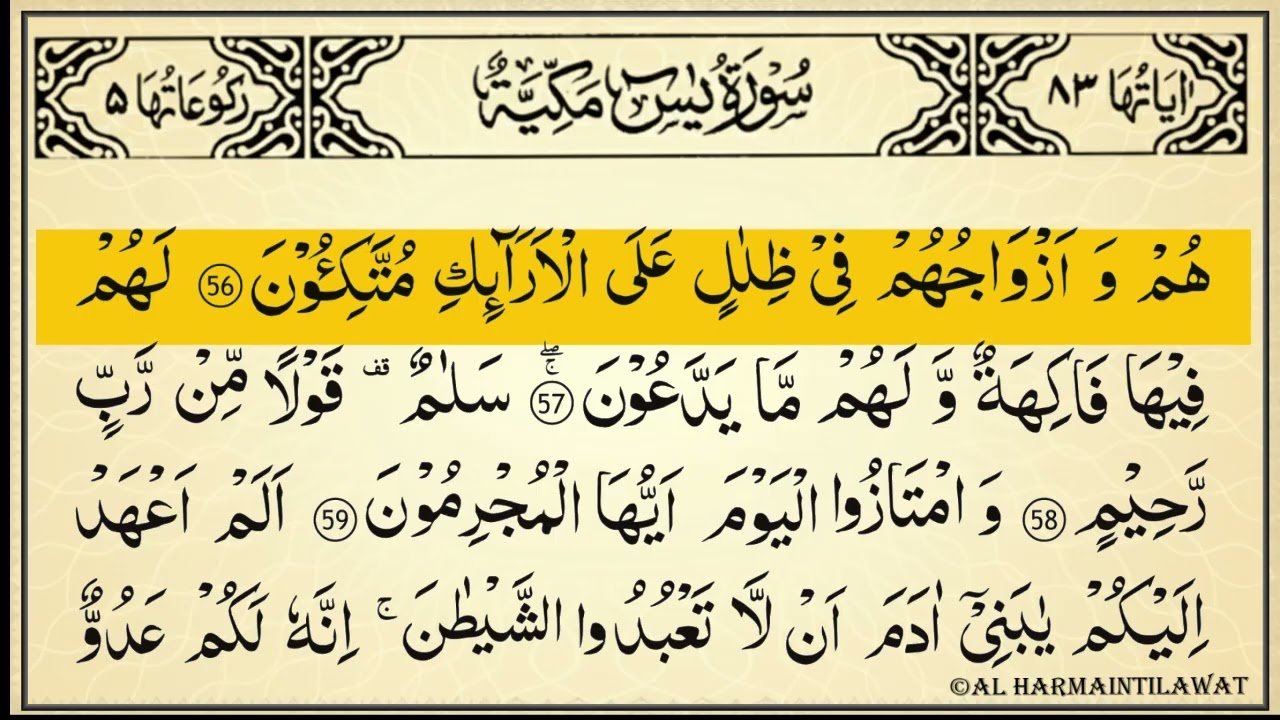 اٰيَاتُهَا ٨٣
سُوْرَةُ يٰسٓ مَكِّيَّةٌ
رُكُوْعَاتُهَا ۵
هُمْ وَ اَزْوَاجُهُمْ فِيْ ظِلٰلٍ عَلَى الْاَرَآئِكِ مُتَّكِـُٔوْنَ 56 لَهُمْ
فِيْهَا فَاكِهَةٌ وَّ لَهُمْ مَّا يَدَّعُوْنَ 57 ۚۖ سَلٰمٌ ۫ قَوْلًا مِّنْ رَّبٍّ
رَّحِيْمٍ 58 وَ امْتَازُوا الْيَوْمَ اَيُّهَا الْمُجْرِمُوْنَ 59 اَلَمْ اَعْهَدْ
اِلَيْكُمْ يٰبَنِيْۤ اٰدَمَ اَنْ لَّا تَعْبُدُوا الشَّيْطٰنَ ۚ اِنَّهٗ لَكُمْ عَدُوٌّ
©AL HARMAINTILAWAT